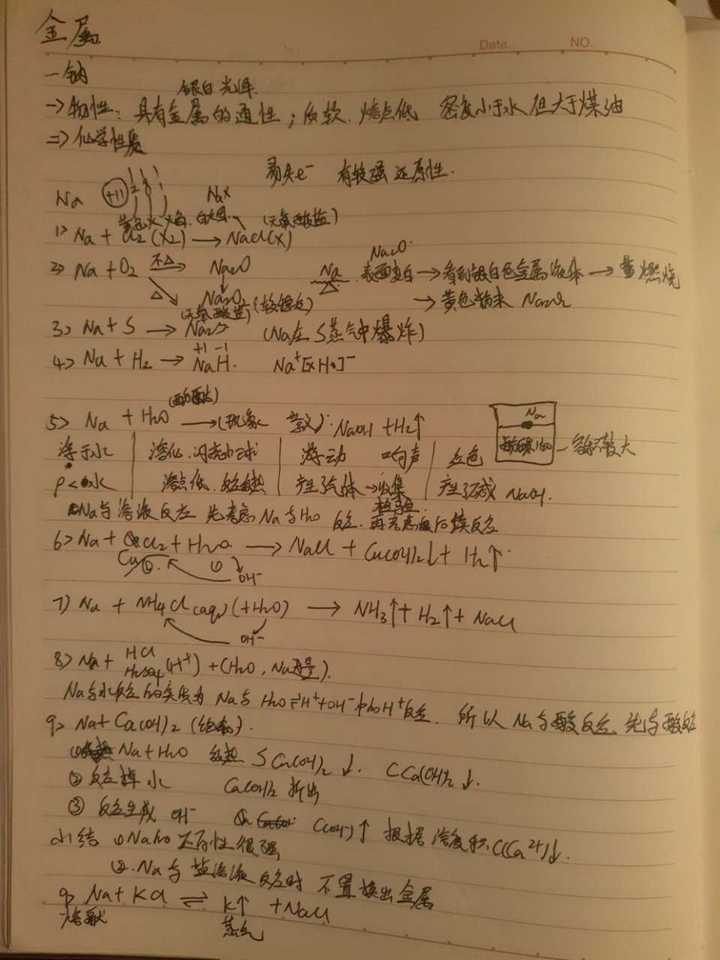 金属
Date. NO.
一 钠
银白光泽
一> 物性: 具有金属的通性; 质软. 熔点低 密度小于水 但大于煤油
二> 化学性质
易失e⁻ 有较强还原性.
Na +11
NaX
1> Na + Cl2 (X2) → NaCl(X) (无氧酸盐)
2> Na + O2 不△→ Na2O
△ → Na2O2
Na △ 表面变白 Na2O → 看到银白色金属液体 → 燃烧
→ 黄色粉末 Na2O2
3> Na + S → Na2S (Na在S蒸气中爆炸)
4> Na + H2 → NaH. +1 -1 Na⁺[×H•]⁻
5> Na + H2O → (现象 ): NaOH + H2↑
浮于水 | 熔化. 闪动小球 | 游动 响声 | 红色
ρ<水 | 熔点低. 反应放热 | 产生气体 → 收集 检验 | 产生碱 NaOH.
Na
Na与溶液反应 先考虑Na与H2O反应. 再考虑后续反应
6> Na + CuCl2 + H2O → NaCl + Cu(OH)2↓ + H2↑
OH⁻
7> Na + NH4Cl(aq) (+H2O) → NH3↑ + H2↑ + NaCl
OH⁻
8> Na + HCl H2SO4 (H⁺) + (H2O, Na过量).
Na与水反应的实质为 Na与 H2O⇌H⁺+OH⁻ 中的H⁺反应. 所以 Na与酸反应 先与酸反应
9> Na + Ca(OH)2 (饱和).
① Na + H2O 放热 S Ca(OH)2 ↓. C Ca(OH)2 ↓.
② 反应掉水 Ca(OH)2 析出
③ 反应生成 OH⁻ C(OH⁻)↑ 根据溶度积. C(Ca²⁺)↓.
小结 ① Na 还原性很强
②. Na与盐溶液反应时 不置换出金属
9> Na + KCl ⇌ K↑ + NaCl
熔融 蒸气